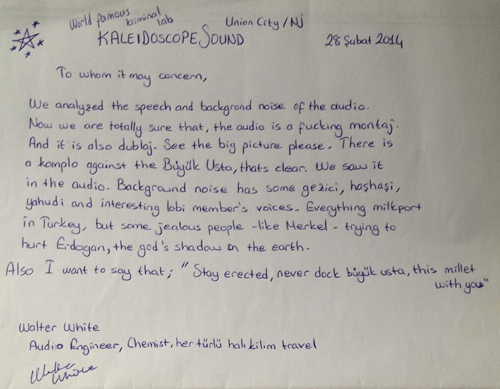 World famous kriminal lab
Union City/NJ
KALEIDOSCOPESOUND
28 Şubat 2014
To whom it may concern,
We analyzed the speech and backgrond noise of the audio.
Now we are totally sure that, the audio is a fucking montaj.
And it is also dublaj. See the big picture please. There is
a komplo against the Büyük Usta, thats clear. We saw it
in the audio. Background noise has some gezici, haşhaşi,
yahudi and interesting lobi member's voices. Everything milkport
in Turkey, but some jealous people -like Merkel- trying to
hurt Erdogan, the god's shadow on the earth.
Also I want to say that; "Stay erected, never dock büyük usta, this millet
with you"
Walter White
Audio Engineer, Chemist, her türlü halı kilim travel
Walter
White